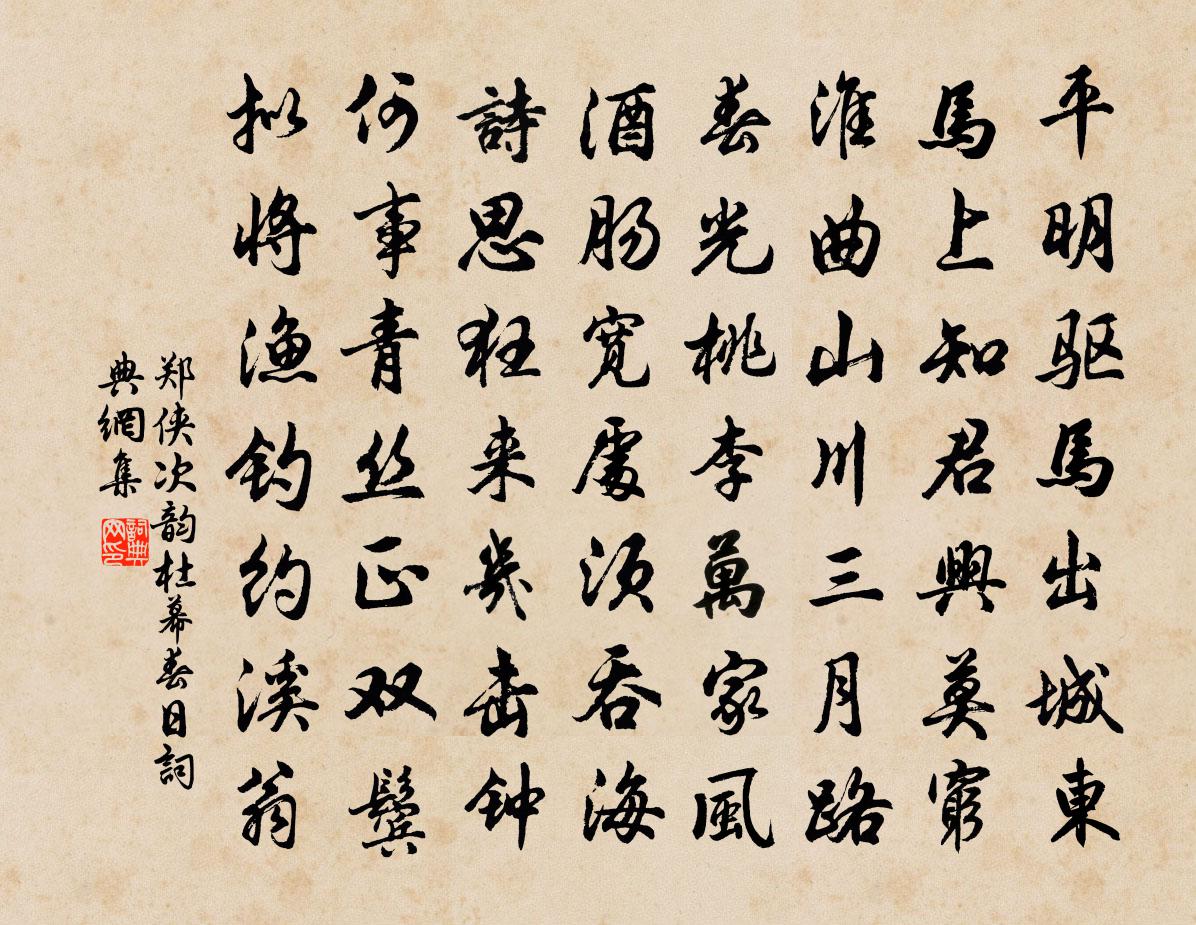 平明驱馬出城東
馬上知君興莫窮
淮曲山川三月路
春光桃李萬家風
酒肠宽處须吞海
詩思狂来幾击钟
何事青丝正双鬓
拟将渔钓约溪翁
郑侠次韵杜幕春日詞
典網集
詞典网印